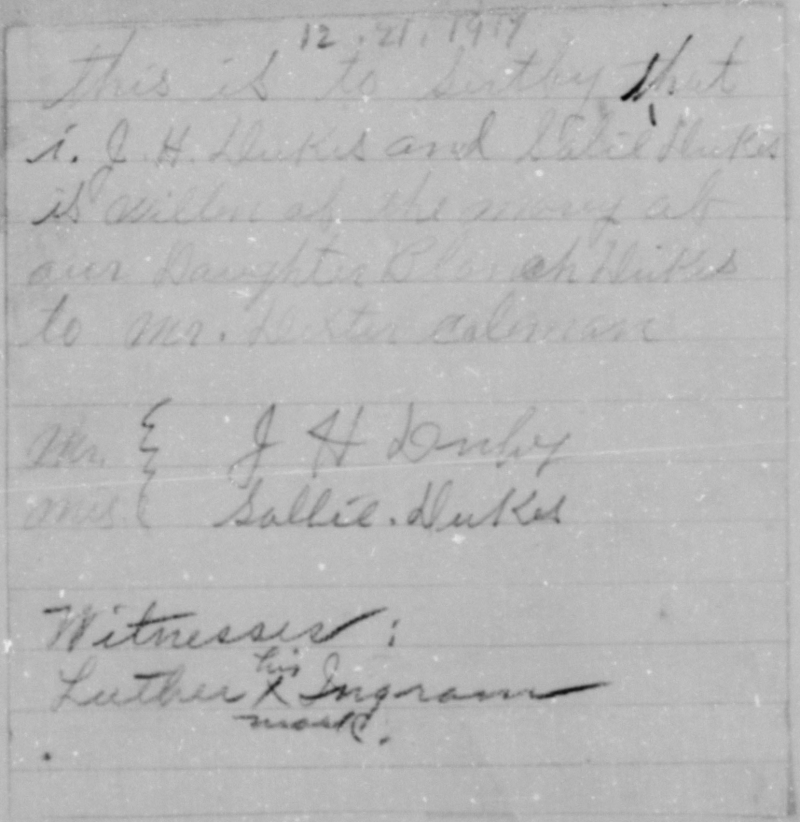 12.21.1919
this is to sertby that
i. J. H. Dukes and Salie Dukes
is willen of the marry ab
our Daughter Blanch Dukes
to Mr. Dexter coleman
Mr. { J H
Mrs { Sallie. Dukes
Witnesses :
his
Luther X Ingram
mark.